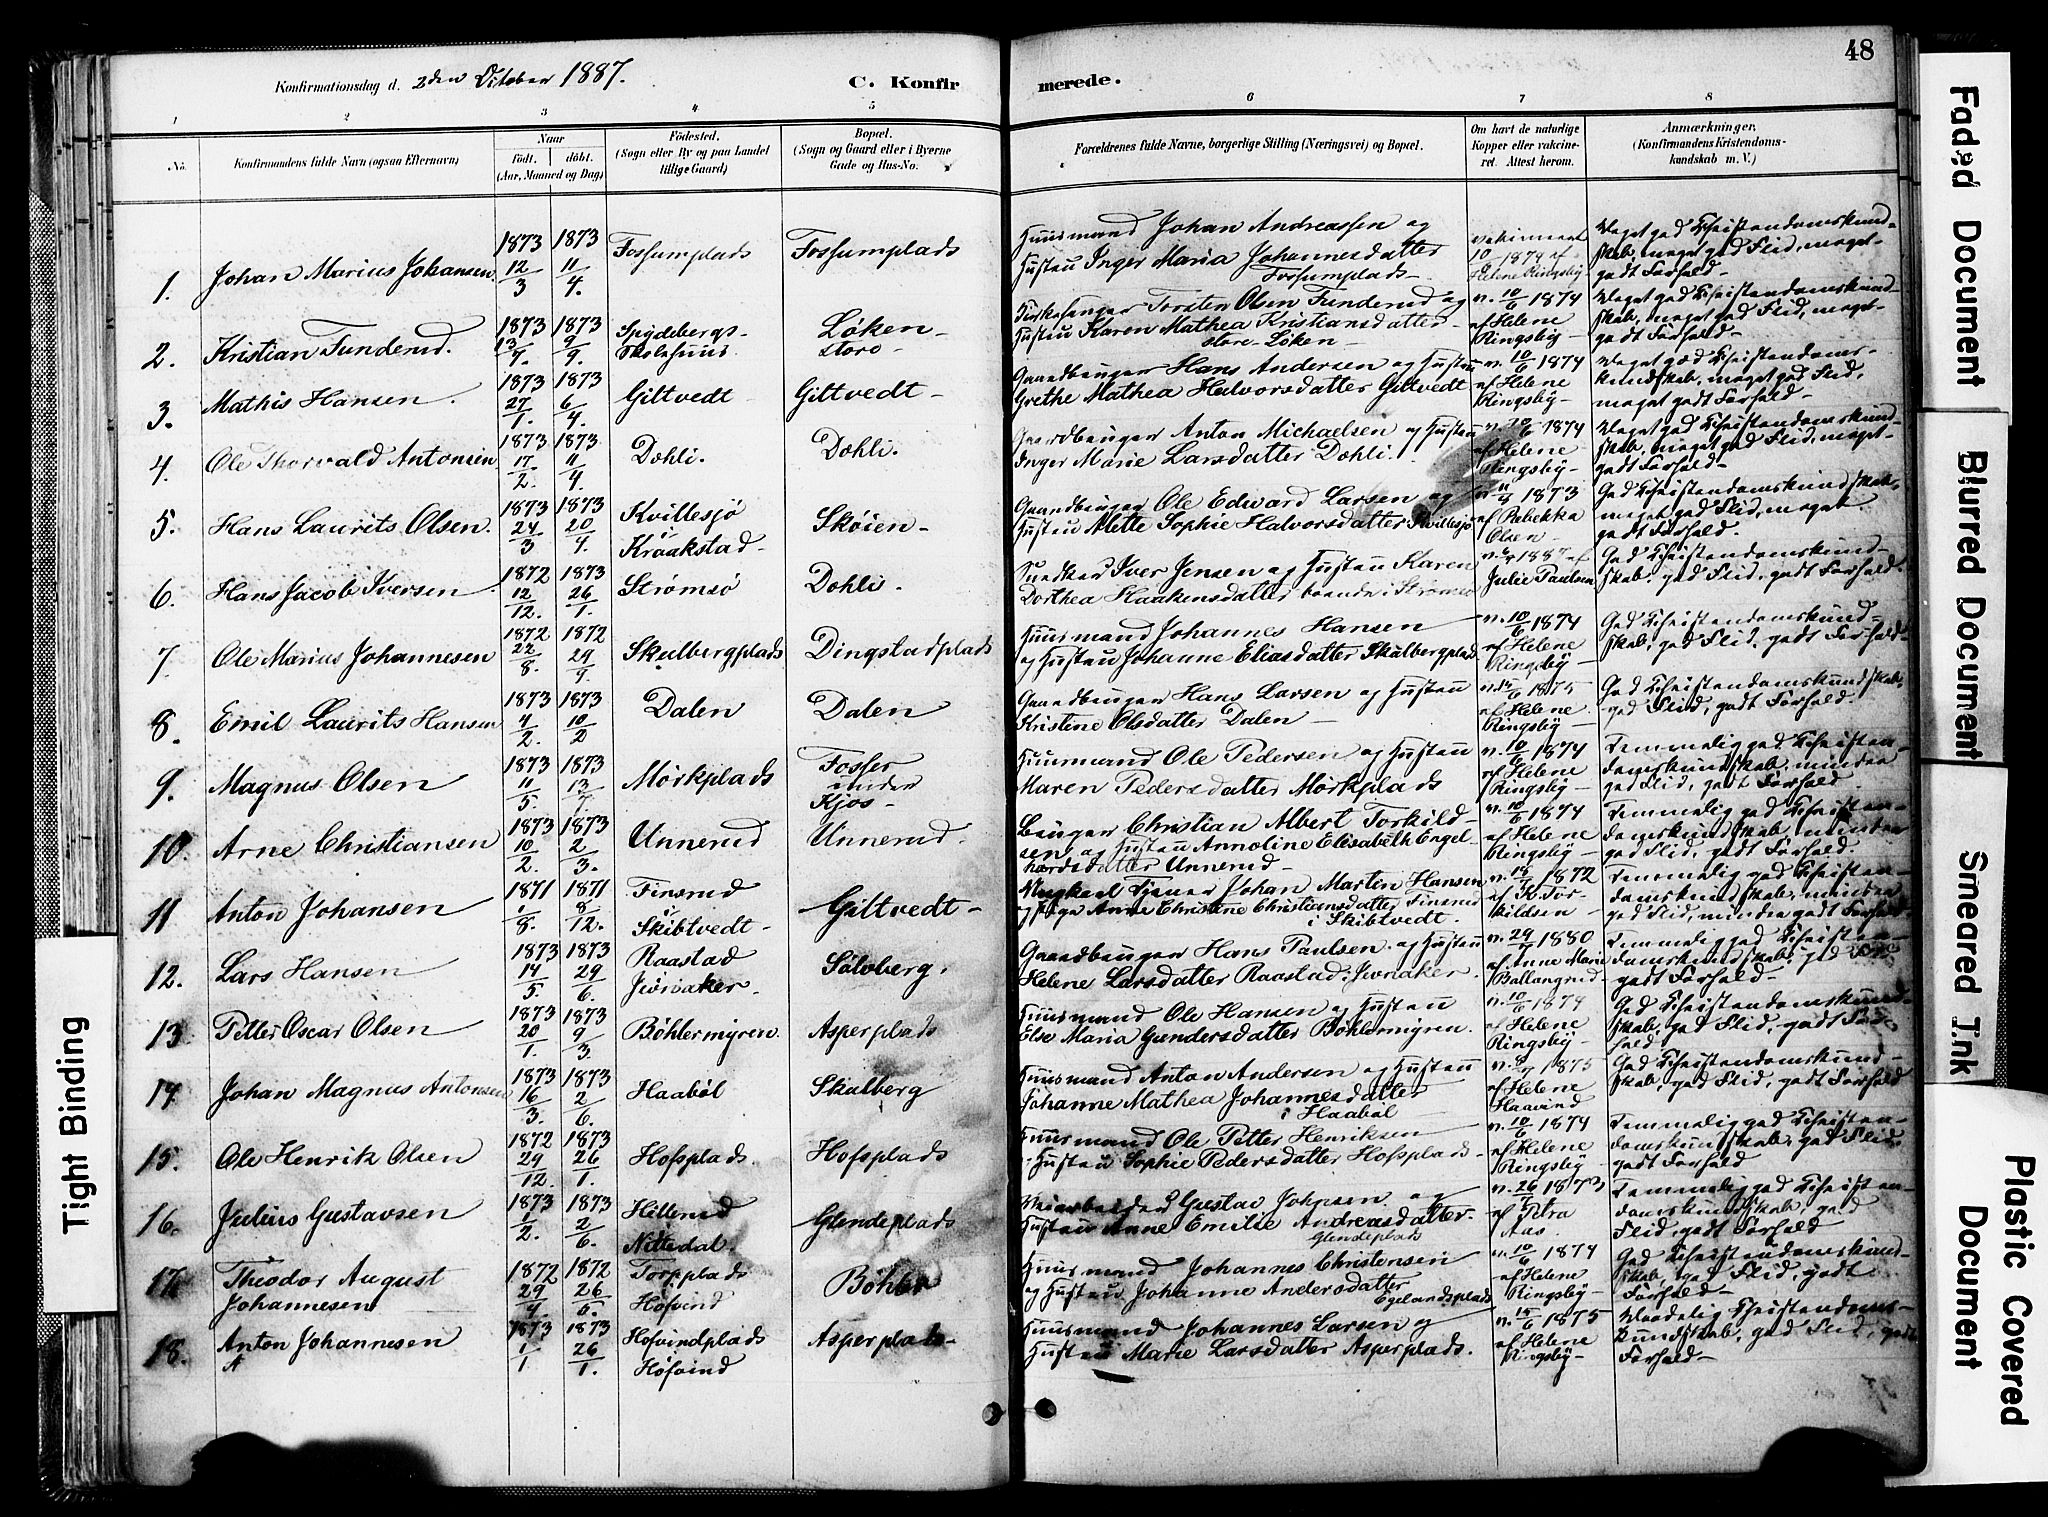 48
Konfirmationsdag d. 2den October 1887.
C. Konfirmerede.
1 2 3 4 5 6 7 8
No.
Konfirmandens fulde Navn (ogsaa Efternavn)
Naar
født. døbt.
(Aar, Maaned og Dag)
Fødested.
(Sogn eller By og paa Landet
tillige Gaard)
Bopæl.
(Sogn og Gaard eller i Byerne
Gade og Hus-No.
Forældrenes fulde Navne, borgerlige Stilling (Næringsvei) og Bopæl.
Om havt de naturlige
Kopper eller vakcine-
ret. Attest herom.
Anmærkninger.
(Konfirmandens Kristendoms-
kundskab m. V.)
1. Johan Marius Johansen 1873 12/3 1873 11/4. Fossumplads Fossumplads
Huusmand Johan Andreassen og
Hustru Inger Maria Johannesdatter
Fossumplads-
10/6 1874 af
Helene Ringsby-
Meget god Christendomskund-
skab, meget god Flid, meget
godt Forhold-
2. Kristian Funderud. 1873 13/7. 1873 9/9. Spydebergs-
Skolehuus. Løken-
store-
Kirkesanger Torsten Olsen Funderud og
Hustru Karen Mathea Kristiansdatter-
store-Løken-
v. 10/6 1874
af Helene
Ringsby-
Meget god Christendomskund-
skab, meget god Flid, meget
godt Forhold-
3. Mathis Hansen. 1873 27/1. 1873 6/4. Giltvedt Giltvedt-
Gaardbruger Hans Andersen og Hustru
Grethe Mathea Halvorsdatter Giltvedt
v. 10/6 1874
af Helene
Ringsby-
Meget god Christendoms-
kundskab, meget god Flid,
meget godt Forhold-
4. Ole Thorvald Antonsen 1873 17/2. 1873 11/4. Dohli. Dohli.
Gaardbruger Anton Michaelsen og Hustru
Inger Marie Larsdatter Dohli.
v. 10/6 1874
af Helene
Ringsby-
Meget god Christendomskund-
skab, meget god Flid, meget
godt Forhold-
5. Hans Laurits Olsen. 1873 24/3 1873 20/4. Kvillesjø
Kraakstad- Skøien-
Gaardbruger Ole Edward Larsen og
Hustru Mette Sophie Halvorsdatter Kvillesjø
1873
af Rebekka
Olsen-
God Christendomskundskab,
meget god Flid, meget
godt Forhold.
6. Hans Jacob Iversen 1872 12/12. 1873 26/1. Strømsø Dohli.
Snedker Iver Jensen og Hustru Karen
Dorthea Haakensdatter boende i Strømsø
1887 af
Julie Paulsen
God Christendomskund-
skab, god Flid, godt Forhold.
7. Ole Marius Johannesen 1872 22/8. 1872 29/9. Skulbergplads Dingstadplads
Huusmand Johannes Hansen
og Hustru Johanne Eliasdatter Skulbergplads
v. 10/6 1874
af Helene
Ringsby-
God Christendomskund-
skab, god Flid, godt Forhold-
8. Emil Laurits Hansen 1873 4/2. 1873 10/2 Dalen Dalen
Gaardbruger Hans Larsen og Hustru
Kristine Olsdatter Dalen-
v. 15/6 1875
af Helene
Ringsby-
God Christendomskundskab,
god Flid, godt Forhold.
9. Magnus Olsen 1873 11/5. 1873 13/7. Mørkplads Fosser
under
Kjos-
Huusmand Ole Pedersen og Hustru
Maren Pedersdatter Mørkplads
v. 10/6 1874
af Helene
Ringsby-
Temmelig god Christen-
domskundskab, mindre
god Flid, godt Forhold
10. Arne Christiansen 1873 10/2. 1873 2/3. Unnerud Unnerud.
Bruger Christian Albert Torkild-
sen og Hustru Annoline Elisabeth Engel-
hardsdatter Unnerud-
v. 10/6 1874
af Helene
Ringsby-
Temmelig god Christen-
domskundskab, mindre
god Flid, godt Forhold.
11 Anton Johansen 1871 1/8. 1871 8/12. Finsrud
Skibtvedt- Giltvedt-
Ungkarl Tjener Johan Martin Hansen
og Pige Anne Christine Christiansdatter Finsrud
i Skibtvedt.
1872
af K. Tor-
kildsen-
Temmelig god Christen-
domskundskab, mindre
god Flid, mindre godt Forhold.
12. Lars Hansen 1873 14/5. 1873 29/6. Raastad
Jevnaker- Sølvberg.
Gaardbruger Hans Paulsen og Hustru
Helene Larsdatter Raastad i Jevnaker.
1880
af Anne Marie
Ballangrud-
Temmelig god Christen-
domskundskab, god Flid
godt Forhold-
13. Petter Oscar Olsen 1873 20/1. 1873 9/3. Bøhlermyren. Asperplads
Huusmand Ole Hansen og Hustru
Else Maria Gundersdatter Bøhlermyren.
v. 10/6 1874
af Helene
Ringsby-
God Christendomskund-
skab, god Flid, godt For-
hold
14. Johan Magnus Antonsen 1873 16/3. 1873 2/6. Haabøl Skulberg
Huusmand Anton Andersen og Hustru
Johanne Mathea Johannesdatter
i Haabøl
1875
af Helene
Haavind
God Christendomskund-
skab, god Flid, godt Forhold
15. Ole Henrik Olsen 1872 29/12. 1873 26/1. Hofsplads. Hofsplads
Huusmand Ole Petter Henriksen
Hustru Sophie Pedersdatter Hofsplads-
v. 10/6 1874
af Helene
Ringsby-
Temmelig god Christen-
domskundskab, god Flid,
godt Forhold
16. Julius Gustavsen 1873 1/2. 1873 2/6. Hillerud
Nittedal. Glendeplads
Gustav Johnsen og
Hustru Anne Emilie Andreasdatter-
Glendeplads
1873,
af Petra
Aas.
Temmelig god Christen-
domskundskab, god
Flid, godt Forhold
17. Theodor August
Johannesen 1872 29/4. 1872 26/5. Torpplads
Hofvind Bøhler
Huusmand Johannes Christensen
og Hustru Johanne Andersdatter
Egelandsplads
v. 10/6 1874
af Helene
Ringsby-
God Christendomskund-
skab, god Flid, godt
Forhold-
18. Anton Johannesen 1873 1/1 1873 26/1. Hofvindplads
Høfvind Asperplads-
Huusmand Johannes Larsen og
Hustru Marie Larsdatter Asperplads.
v. 15/6 1875
af Helene
Ringsby-
Maadelig Christendoms-
kundskab, god Flid, godt
Forhold-
Tight Binding
Faded Document
Blurred Document
Smeared Ink
Plastic Covered
Document